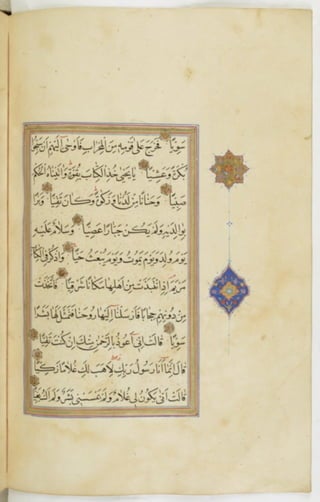 سَوِيًّا فَخَرَجَ عَلَى قَوْمِهِ مِنَ الْمِحْرَابِ فَأَوْحَى إِلَيْهِمْ أَنْ سَبِّحُوا
بُكْرَةً وَعَشِيًّا يَا يَحْيَى خُذِ الْكِتَابَ بِقُوَّةٍ وَآتَيْنَاهُ الْحُكْمَ
صَبِيًّا وَحَنَانًا مِنْ لَدُنَّا وَزَكَوةً وَكَانَ تَقِيًّا وَبَرًّا
بِوَالِدَيْهِ وَلَمْ يَكُنْ جَبَّارًا عَصِيًّا وَسَلَامٌ عَلَيْهِ
يَوْمَ وُلِدَ وَيَوْمَ يَمُوتُ وَيَوْمَ يُبْعَثُ حَيًّا وَاذْكُرْ فِي الْكِتَابِ
مَرْيَمَ إِذِ انْتَبَذَتْ مِنْ أَهْلِهَا مَكَانًا شَرْقِيًّا فَاتَّخَذَتْ
مِنْ دُونِهِمْ حِجَابًا فَأَرْسَلْنَا إِلَيْهَا رُوحَنَا فَتَمَثَّلَ لَهَا بَشَرًا
سَوِيًّا قَالَتْ إِنِّي أَعُوذُ بِالرَّحْمَنِ مِنْكَ إِنْ كُنْتَ تَقِيًّا
قَالَ إِنَّمَا أَنَا رَسُولُ رَبِّكِ لِأَهَبَ لَكِ غُلَامًا زَكِيًّا
قَالَتْ أَنَّى يَكُونُ لِي غُلَامٌ وَلَمْ يَمْسَسْنِي بَشَرٌ وَلَمْ أَكُ بَغِيًّا